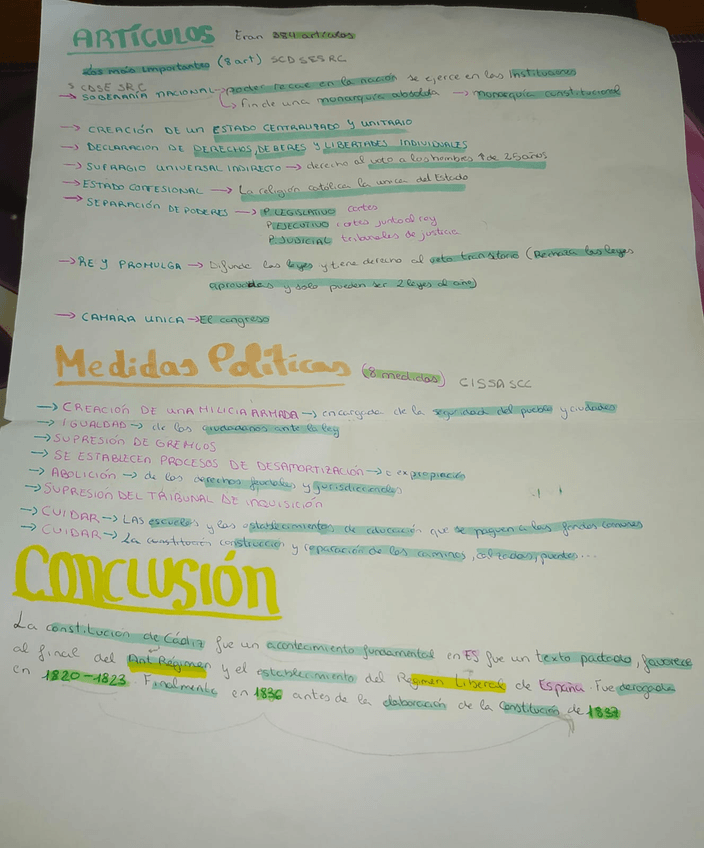 ARTÍCULOS Eran 384 artículos
Los más importantes (8 art) SCD SESRC
SCDSE SRC
→ SOBERANÍA NACIONAL → poder recae en la nación se ejerce en las Instituciones
↳ fin de una monarquía absolda → monarquía constitucional
→ CREACIÓN DE un ESTADO CENTRALIZADO Y UNITARIO
→ DECLARACIÓN DE DERECHOS, DEBERES Y LIBERTADES INDIVIDUALES
→ SUFRAGIO UNIVERSAL INDIRECTO → derecho al voto a los hombres + de 25 años
→ ESTADO CONFESIONAL → La religión católica la unica del Estado
→ SEPARACIÓN DE PODERES → P. LEGISLATIVO cortes
P. EJECUTIVO cortes junto al rey
P. JUDICIAL tribunales de justicia
→ REY PROMULGA → Difunde las leyes y tiene derecho al veto transitorio (Rechaza las leyes
aprovadas y solo pueden ser 2 leyes al año)
→ CAMARA UNICA → El congreso
Medidas Políticas (8 medidas) CISSASCC
→ CREACIÓN DE UNA MILICIA ARMADA → encargada de la seguridad del pueblo y ciudades
→ IGUALDAD → de los ciudadanos ante la ley
→ SUPRESIÓN DE GREMIOS
→ SE ESTABLECEN PROCESOS DE DESAMORTIZACIÓN → expropiación
→ ABOLICIÓN → de los derechos feudales y jurisdiccionales
→ SUPRESIÓN DEL TRIBUNAL DE INQUISICIÓN
→ CUIDAR → LAS escuelas y los establecimientos de educación que se paguen a los fondos comunes
→ CUIDAR → La constitución construcción y reparación de los caminos, calzadas, puentes...
CONCLUSIÓN
La constitución de Cádiz fue un acontecimiento fundamental en ES fue un texto pactado, favorece
al final del Ant Régimen y el establecimiento del Régimen Liberal de España. Fue derogada
en 1820-1823. Finalmente en 1836 antes de la elaboración de la Constitución de 1837